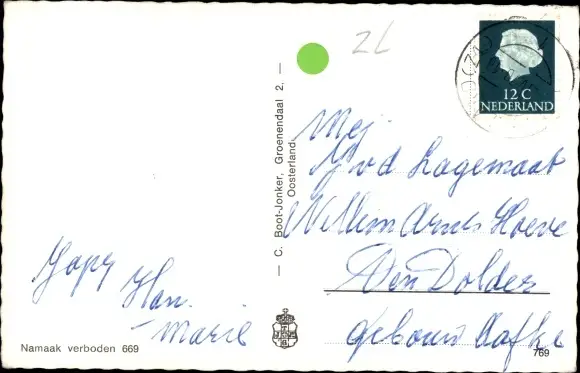 ZL
12 C
NEDERLAND
Mej.
J v d Lagemaat
Willem Arntsz Hoeve
Den Dolder
gebouw Aafke
Jopy Han
Marie
— C. Boot-Jonker, Groenendaal 2, —
Oosterland
Namaak verboden 669
769